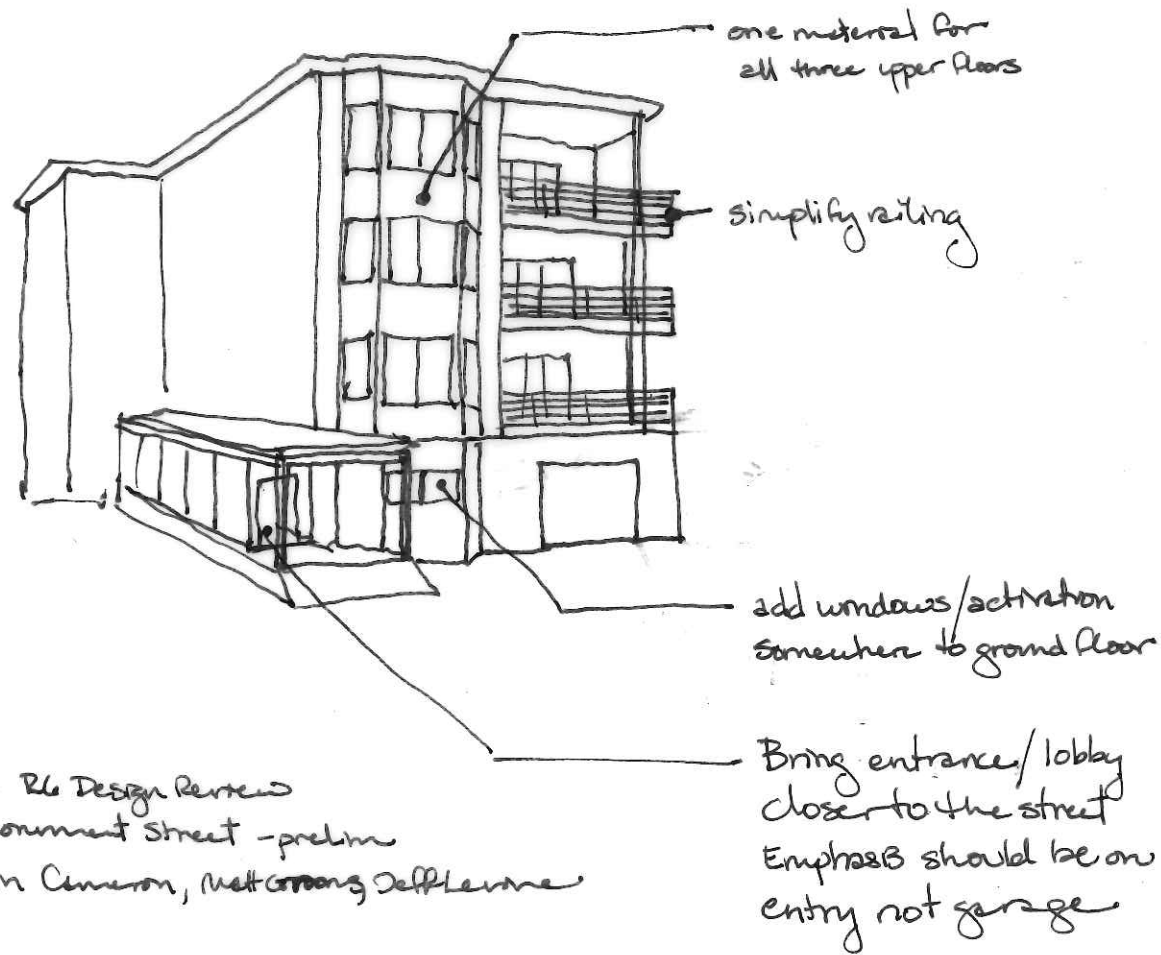 one material for
all three upper floors
simplify railing
add windows/activation
somewhere to ground floor
Bring entrance/lobby
closer to the street
Emphasis should be on
entry not garage
R6 Design Review
onument Street - prelim
n Cameron, Matt Grooms, Jeff Levine